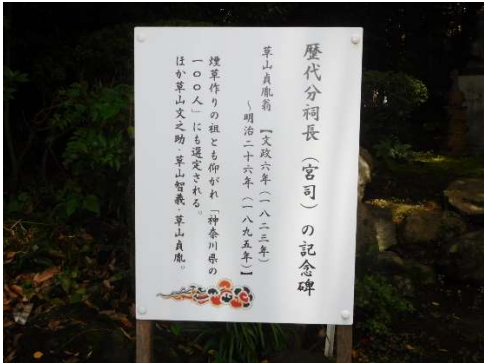 歴代分祠長（宮司）の記念碑
草山貞胤翁【文政六年（一八二三年）
～明治二十六年（一八九五年）】
煙草作りの祖とも仰がれ「神奈川県の
一〇〇人」にも選定される。
ほか草山文之助・草山智義・草山貞胤。